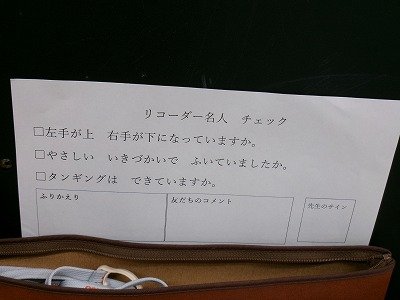 リコーダー名人　チェック
□左手が上　右手が下になっていますか。
□やさしい　いきづかいで　ふいていましたか。
□タンギングは　できていますか。
ふりかえり
友だちのコメント
先生のサイン